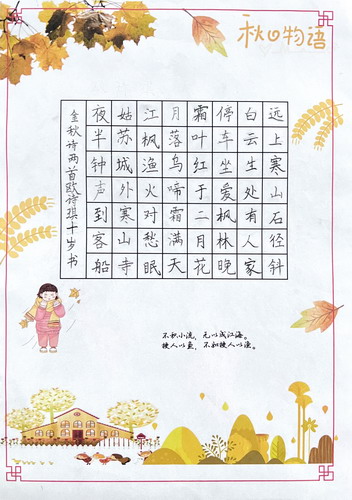 秋日物语
远上寒山石径斜
白云生处有人家
停车坐爱枫林晚
霜叶红于二月花
月落乌啼霜满天
江枫渔火对愁眠
姑苏城外寒山寺
夜半钟声到客船
金秋诗两首欧诗琪十岁书
不积小流，无以成江海。
授人以鱼，不如授人以渔。